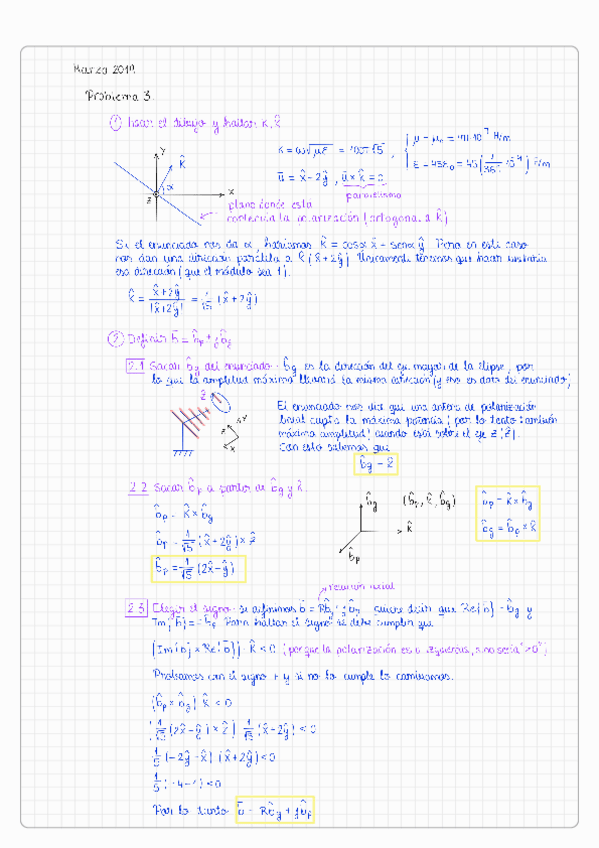 Marzo 2019
Problema 3.
① hacer el dibujo y hallar k, k̂
k = ω√με = 100π√5 ,
μ = μ₀ = 4π·10⁻⁷ H/m
ū = x̂ + 2ŷ , ū × k̂ = 0
paralelismo
y
k̂
α
x
z
plano donde está
contenida la polarización (ortogonal a k̂)
Si el enunciado nos da α, haríamos k̂ = cosα x̂ - senα ŷ. Pero en este caso
nos dan una dirección paralela a k̂ (x̂+2ŷ). Únicamente tenemos que hacer unitaria
esa dirección (que el módulo sea 1).
k̂ = (x̂+2ŷ)/|x̂+2ŷ| = 1/√5 (x̂ + 2ŷ)
② Definir
2.1 Sacar b̂g del enunciado: b̂g es la dirección del eje mayor de la elipse, por
lo que la amplitud máxima llevará la misma dirección (y eso es dato del enunciado)
z
x
El enunciado nos dice que una antena de polarización
lineal capta la máxima potencia (por lo tanto también
máxima amplitud) cuando está sobre el eje z (ẑ).
Con esto sabemos que
b̂g = ẑ
2.2 Sacar b̂p a partir de b̂g y k̂.
b̂p = k̂ × b̂g
b̂p = 1/√5 (x̂ + 2ŷ) × ẑ
b̂p = 1/√5 (2x̂ - ŷ)
b̂g
(b̂p, k̂, b̂g)
k̂
b̂p
b̂p = k̂ × b̂g
b̂g = b̂p × k̂
relación axial
2.3 Elegir el signo: si definimos quiere decir que y
Para hallar el signo se debe cumplir que
k̂ < 0 (porque la polarización es a izquierdas, si no sería ">0")
Probamos con el signo + y si no lo cumple lo cambiamos.
(b̂p × b̂g) k̂ < 0
1/5 (-2ŷ - x̂) (x̂ + 2ŷ) < 0
1/5 (-4-1) < 0
Por lo tanto b̄ = Rb̂g + jb̂p